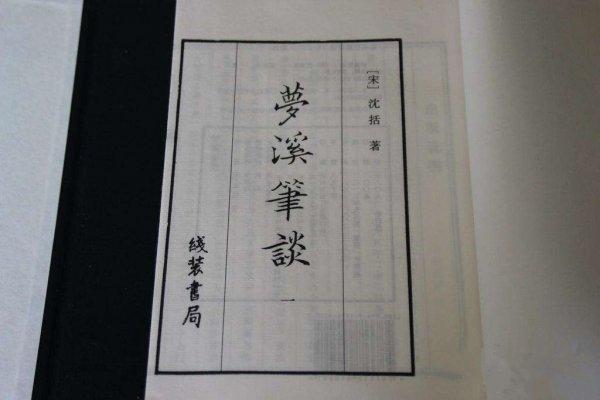 [宋]沈括 著
夢溪筆談
一
綫装書局